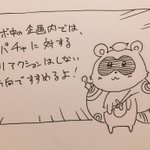 ボ中の企画内では、
パチャに対する
リアクションはしない
方向ですすめるよ!